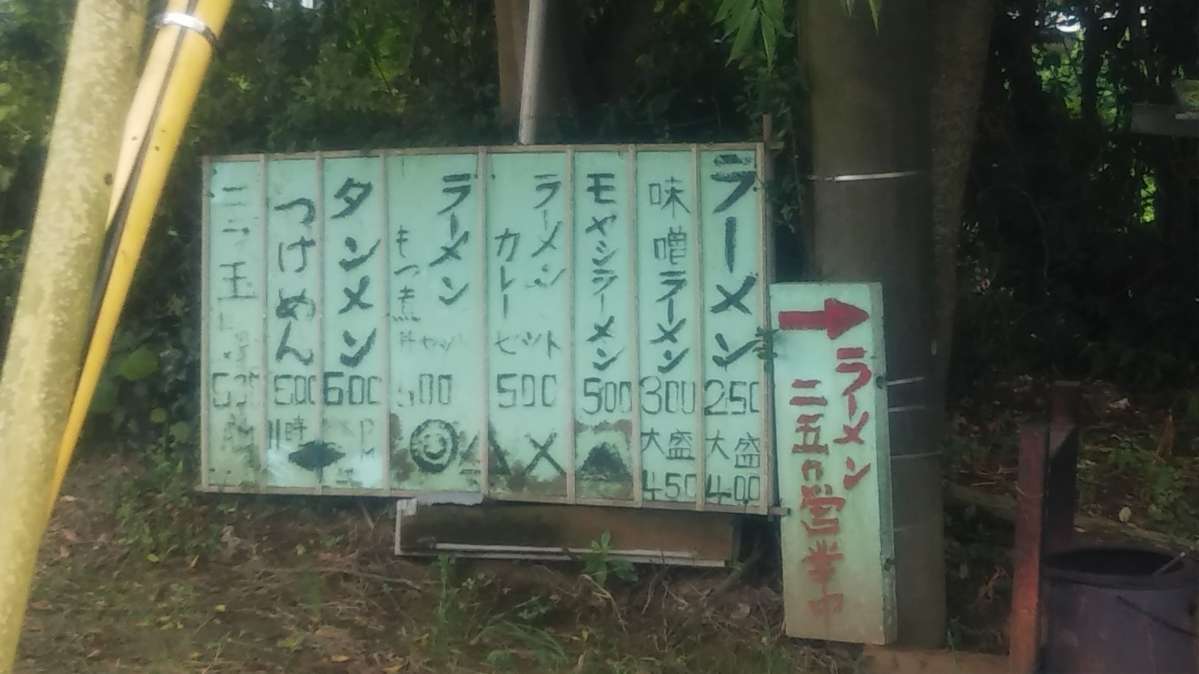 ラーメン
250
大盛
400
味噌ラーメン
300
大盛
450
モヤシラーメン
500
ラーメン
カレー
セット
500
ラーメン
もつ煮
00
タンメン
500
つけめん
500
11時
玉
ラーメン
二五〇営業中